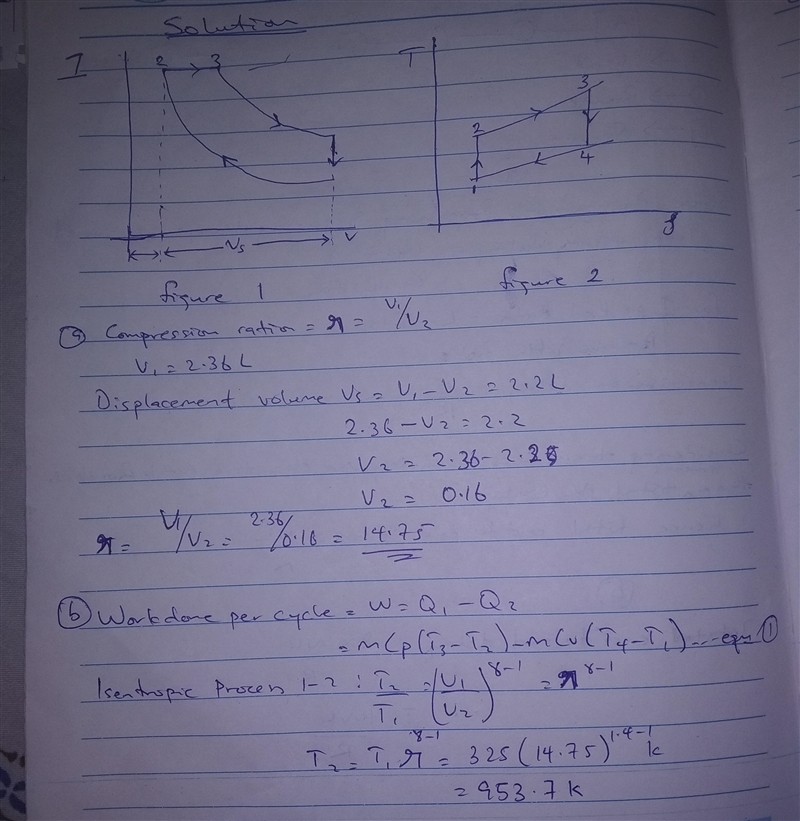 Solution
I
2 3
T
3
2
4
1
Vs
V
s
figure 1
figure 2
(a) Compression ration = r = V₁/V₂
V₁ = 2.36 L
Displacement volume Vs = V₁ - V₂ = 2.2L
2.36 - V₂ = 2.2
V₂ = 2.36 - 2.2
V₂ = 0.16
r = V₁/V₂ = 2.36/0.16 = 14.75
(b) Workdone per cycle = W = Q₁ - Q₂
= mCp(T₃-T₂) - mCv(T₄-T₁) ... eqn (1)
Isentropic Process 1-2 : T₂/T₁ = (V₁/V₂)^γ-1 = r^γ-1
T₂ = T₁ r^γ-1 = 325(14.75)^1.4-1 k
= 953.7 k